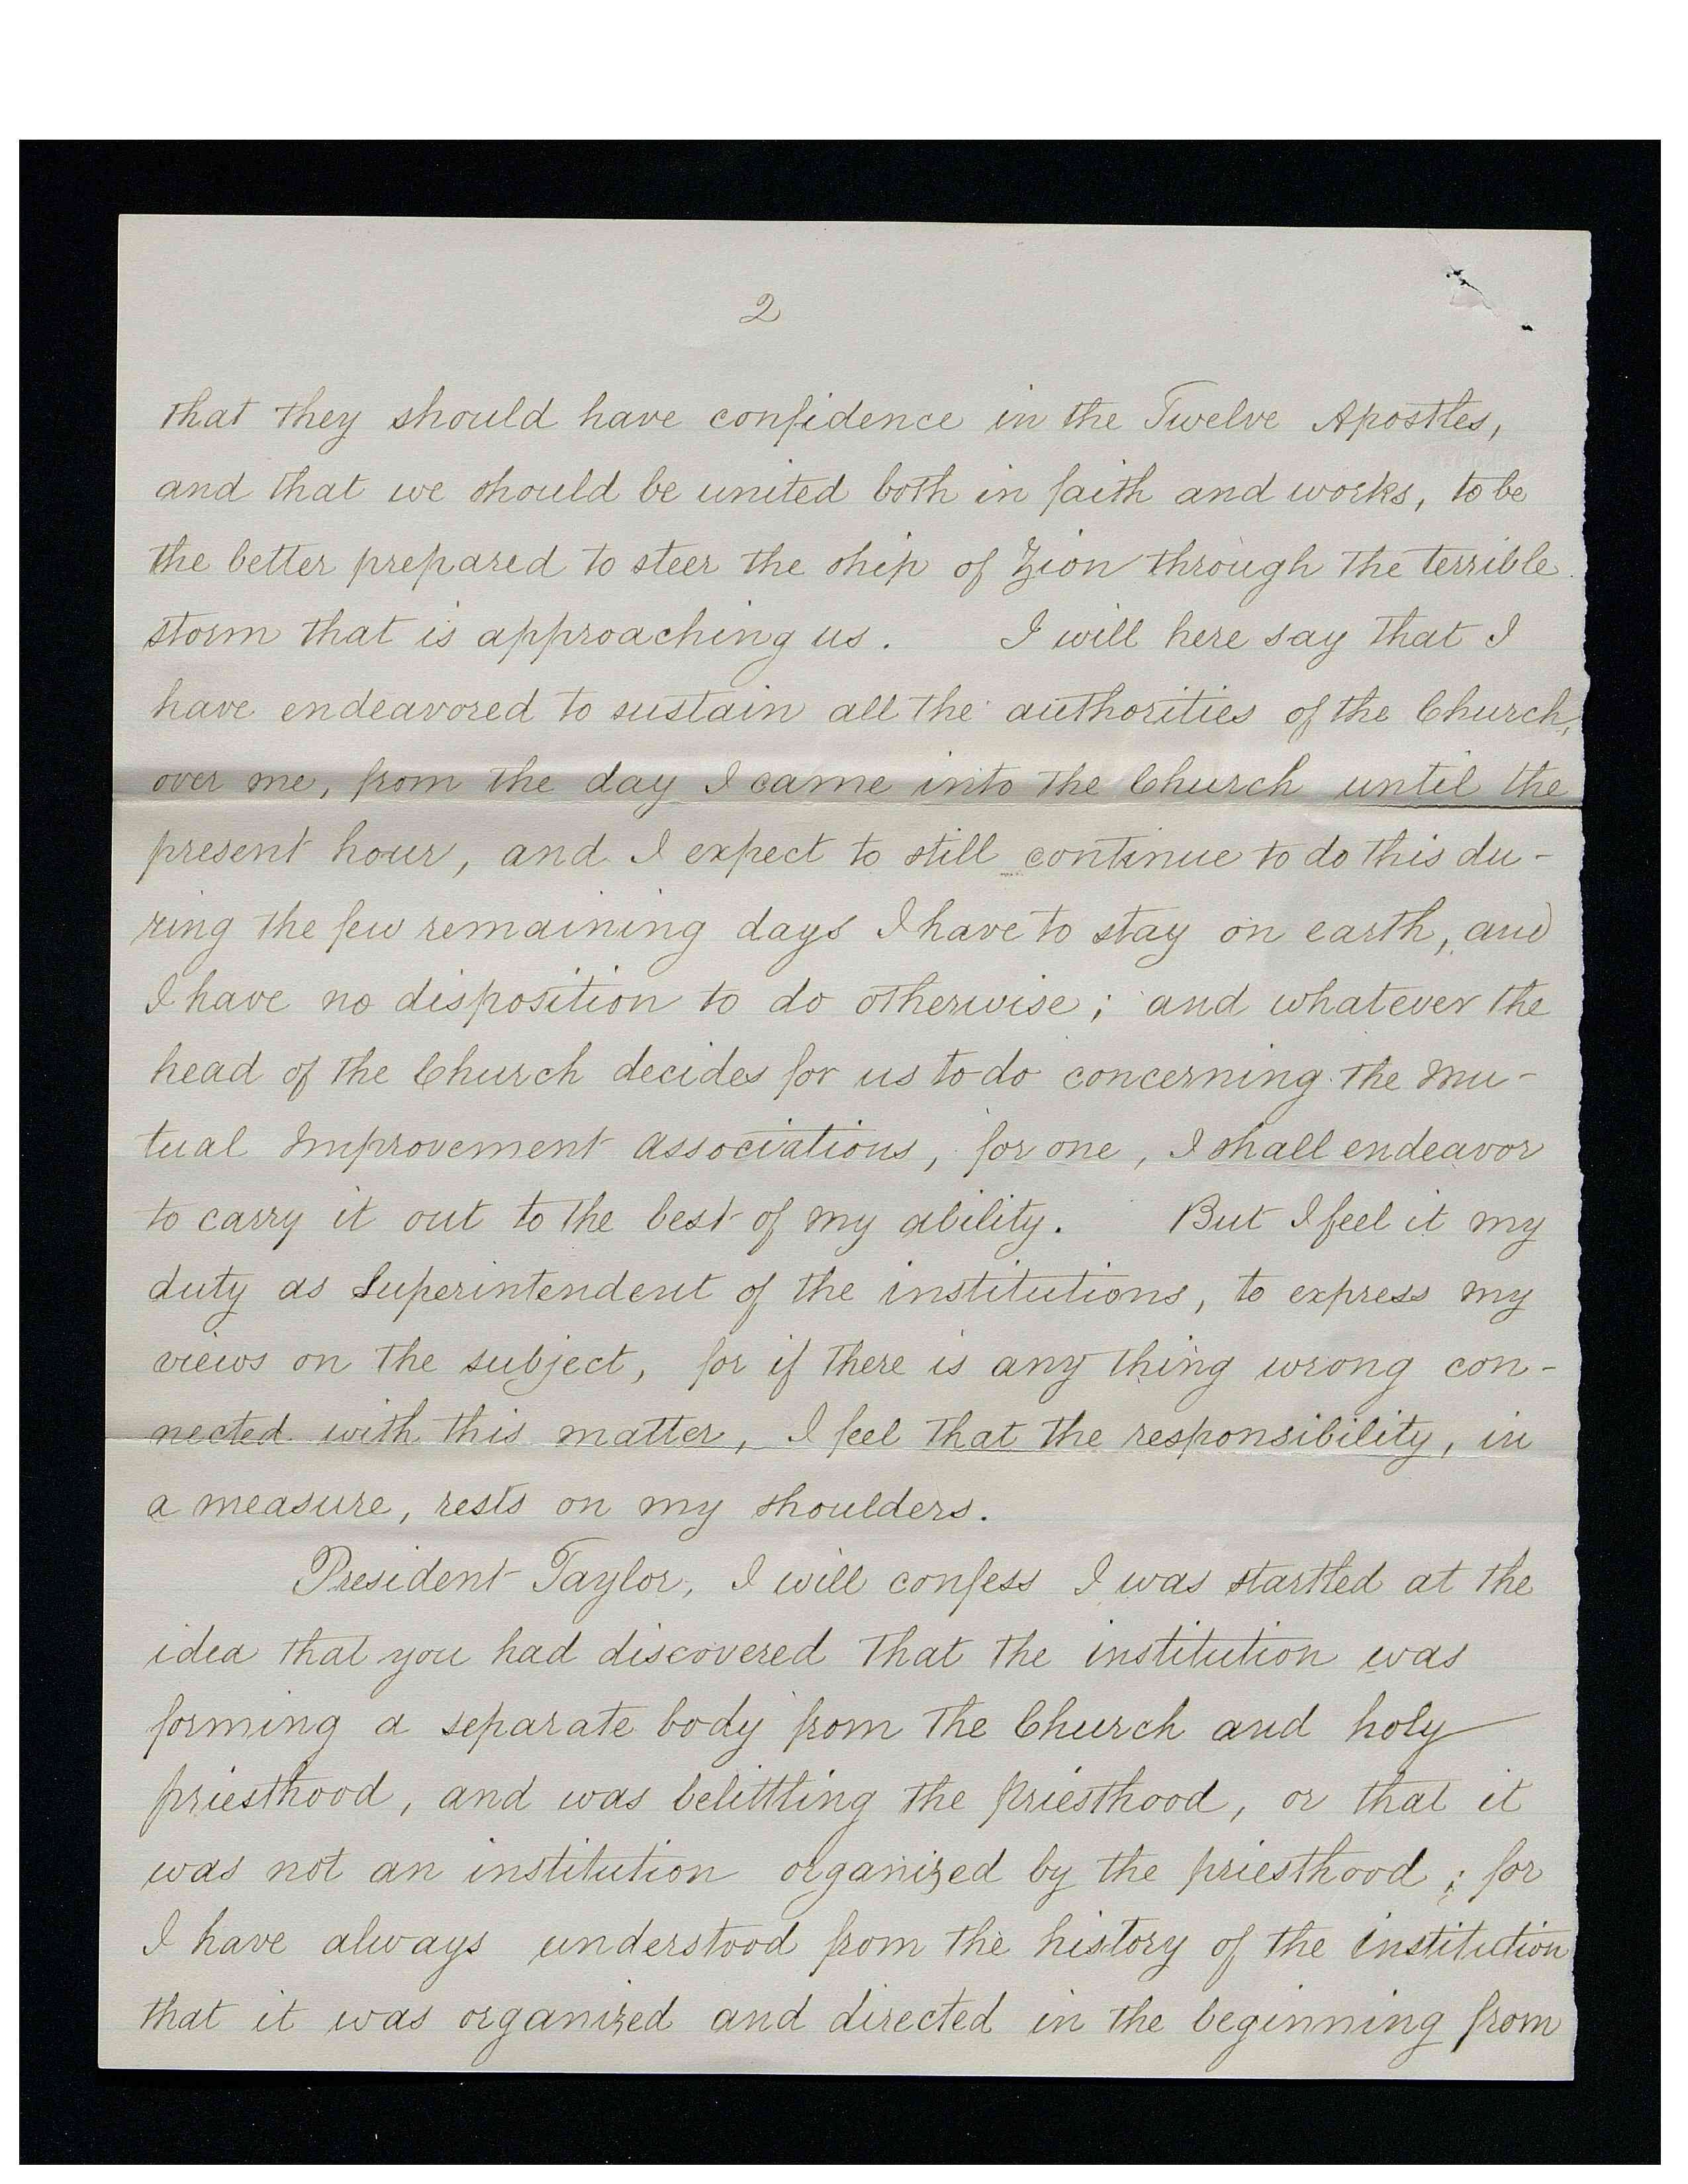 2
that they should have confidence in the Twelve Apostles,
and that we should be united both in faith and works, to be
the better prepared to steer the ship of Zion through the terrible
storm that is approaching us. I will here say that I
have endeavored to sustain all the authorities of the Church,
over me, from the day I came into the Church until the
present hour, and I expect to still continue to do this du-
ring the few remaining days I have to stay on earth, and
I have no disposition to do otherwise; and whatever the
head of the Church decides for us to do concerning the Mu-
tual Improvement Associations, for one, I shall endeavor
to carry it out to the best of my ability. But I feel it my
duty as Superintendent of the institutions, to express my
views on the subject, for if there is any thing wrong con-
nected with this matter, I feel that the responsibility, in
a measure, rests on my shoulders.
President Taylor, I will confess I was startled at the
idea that you had discovered that the institution was
forming a separate body from the Church and holy
priesthood, and was belittling the Priesthood, or that it
was not an institution organized by the priesthood; for
I have always understood from the history of the institution
that it was organized and directed in the beginning from